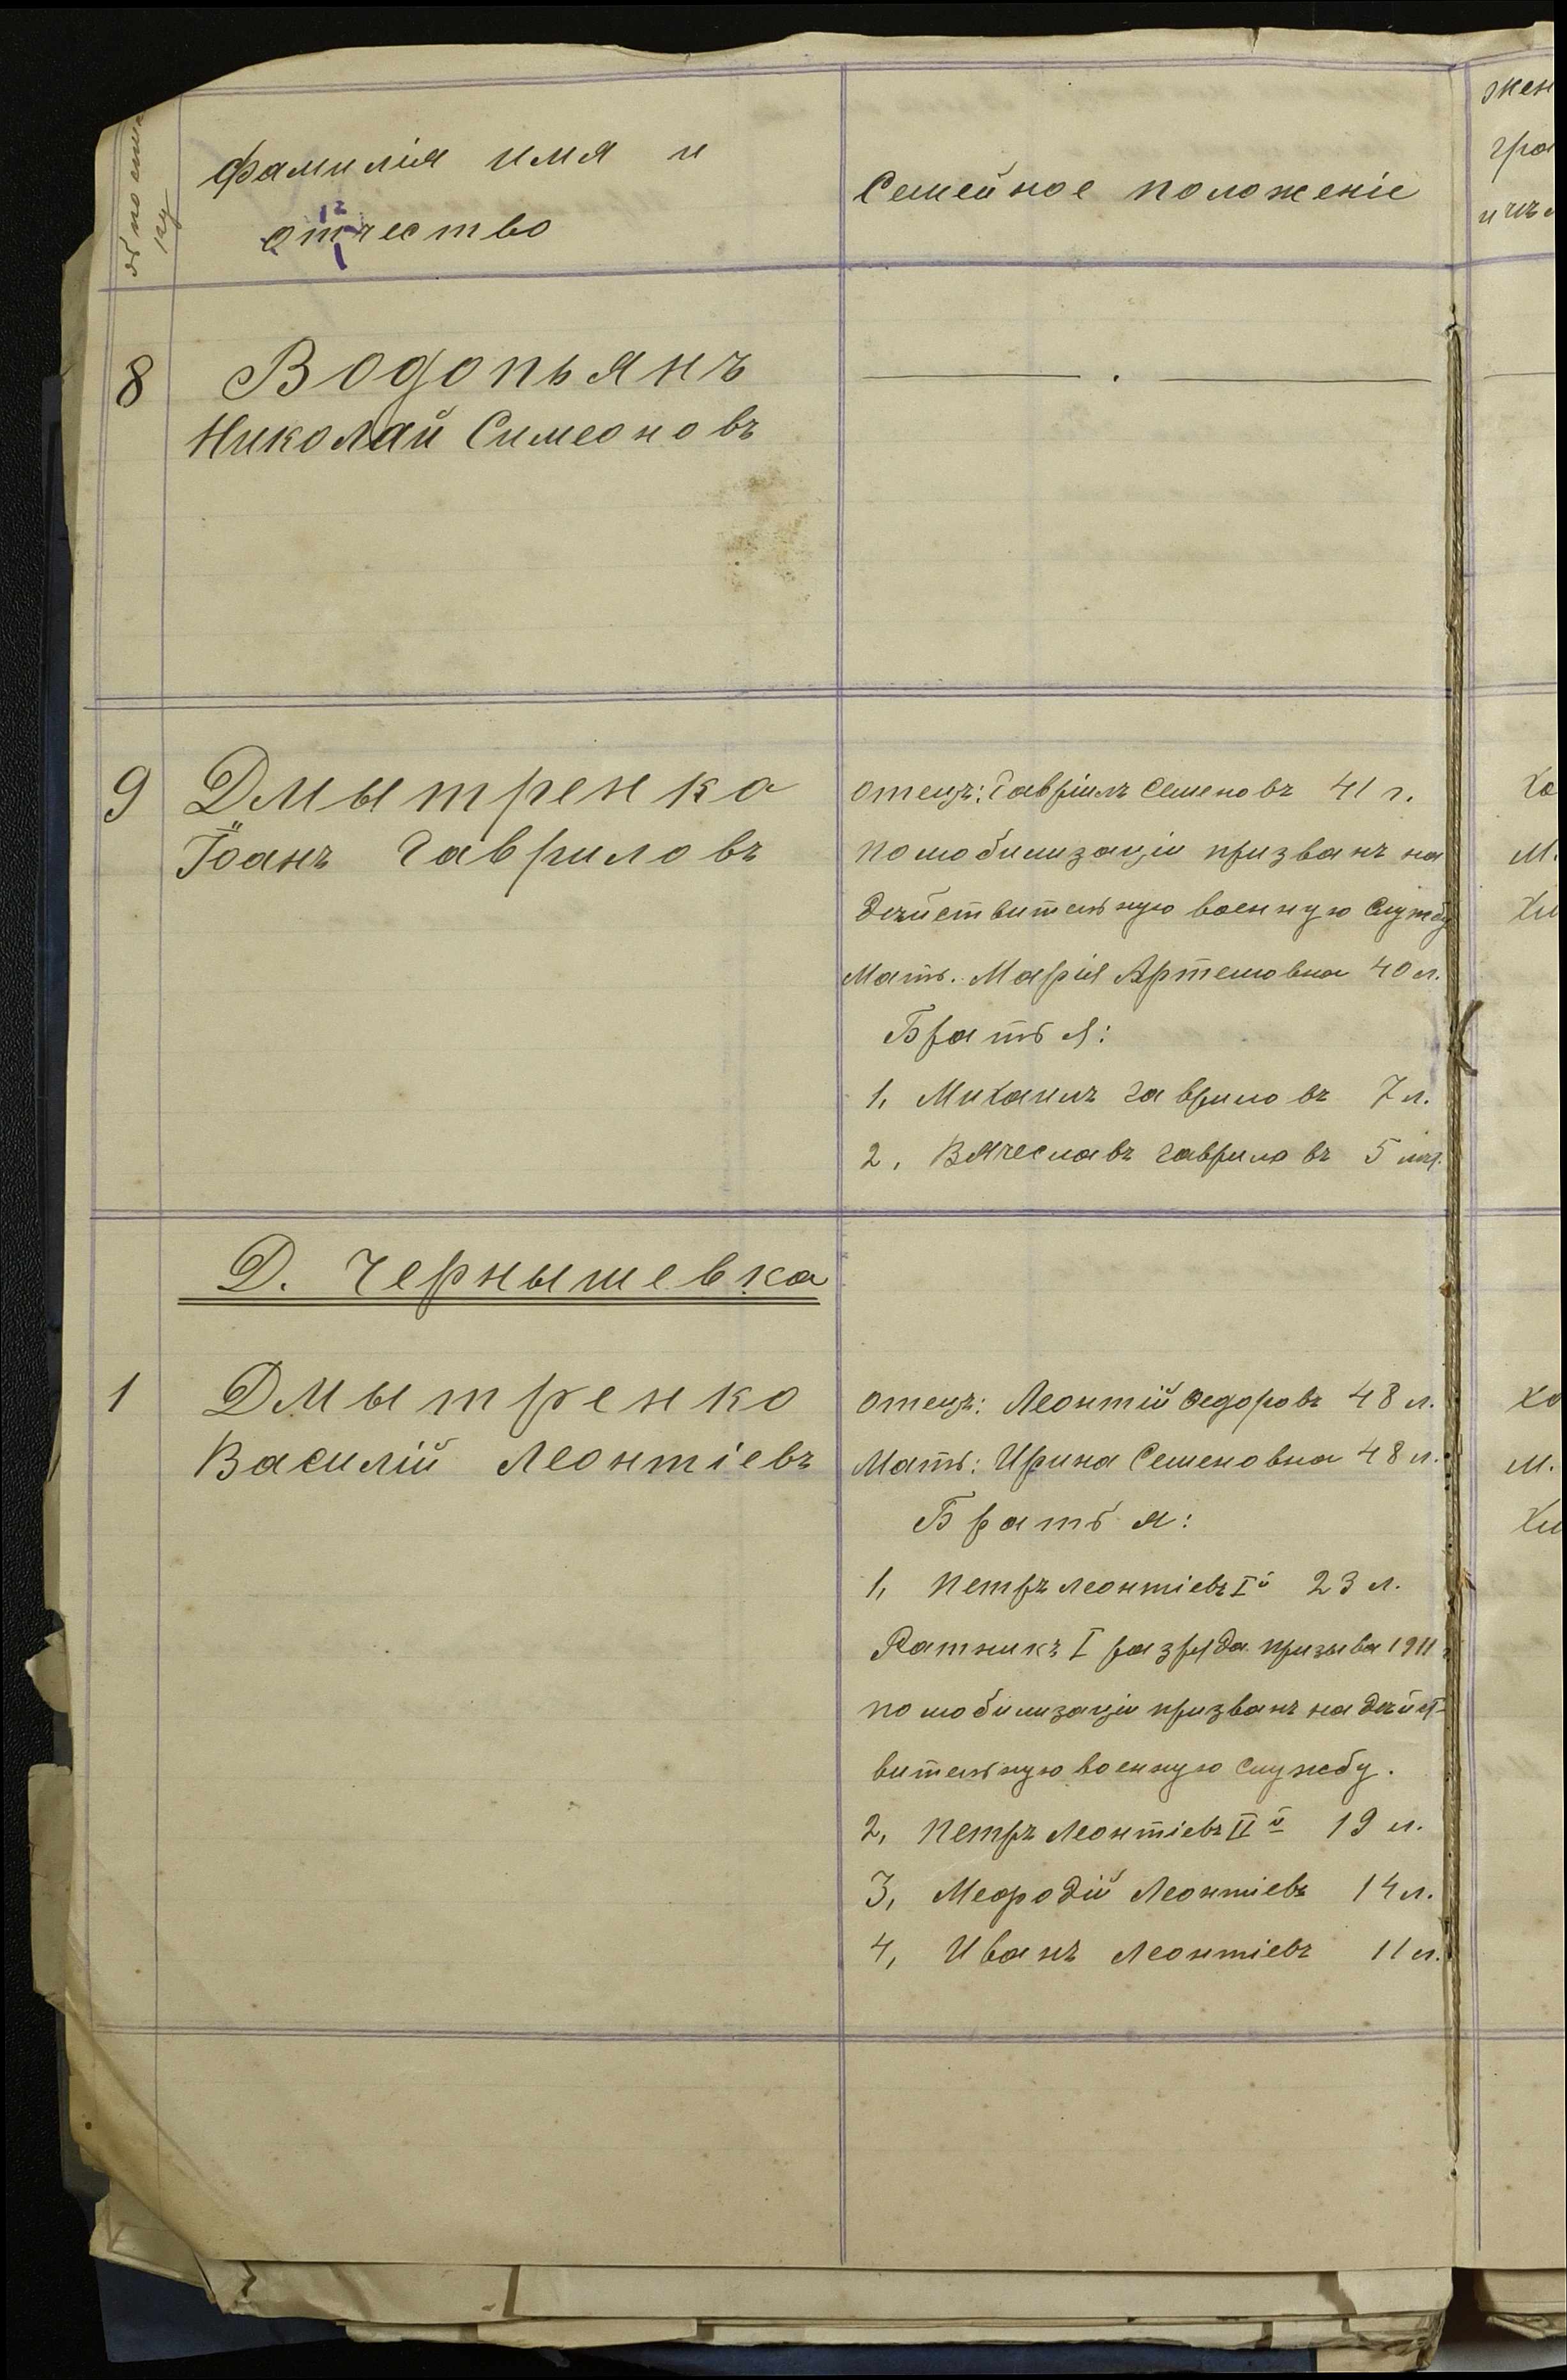 № по спис
ку
Фамилія имя и
отчество
Семейное положеніе
8
Водопьянъ
Николай Симеоновъ
9
Дмытренко
Іоанъ Гавриловъ
отецъ: Гавріилъ Семеновъ 41 г.
по мобилизаціи призванъ на
дѣйствительную военную службу
Мать. Марія Артемовна 40 л.
Братья:
1, Михаилъ Гавриловъ 7 л.
2, Вячеславъ Гавриловъ 5 лѣт.
Д. Чернышевка
1
Дмытренко
Василій Леонтіевъ
отецъ: Леонтій Ѳедоровъ 48 л.
Мать: Ирина Семеновна 48 л.
Братья:
1, Петръ Леонтіевъ Iй 23 л.
Ратникъ I разряда призыва 1911
по мобилизаціи призванъ на дѣйст-
вительную военную службу.
2, Петръ Леонтіевъ IIй 19 л.
3, Мефодій Леонтіевъ 14 л.
4, Иванъ Леонтіевъ 11 л.